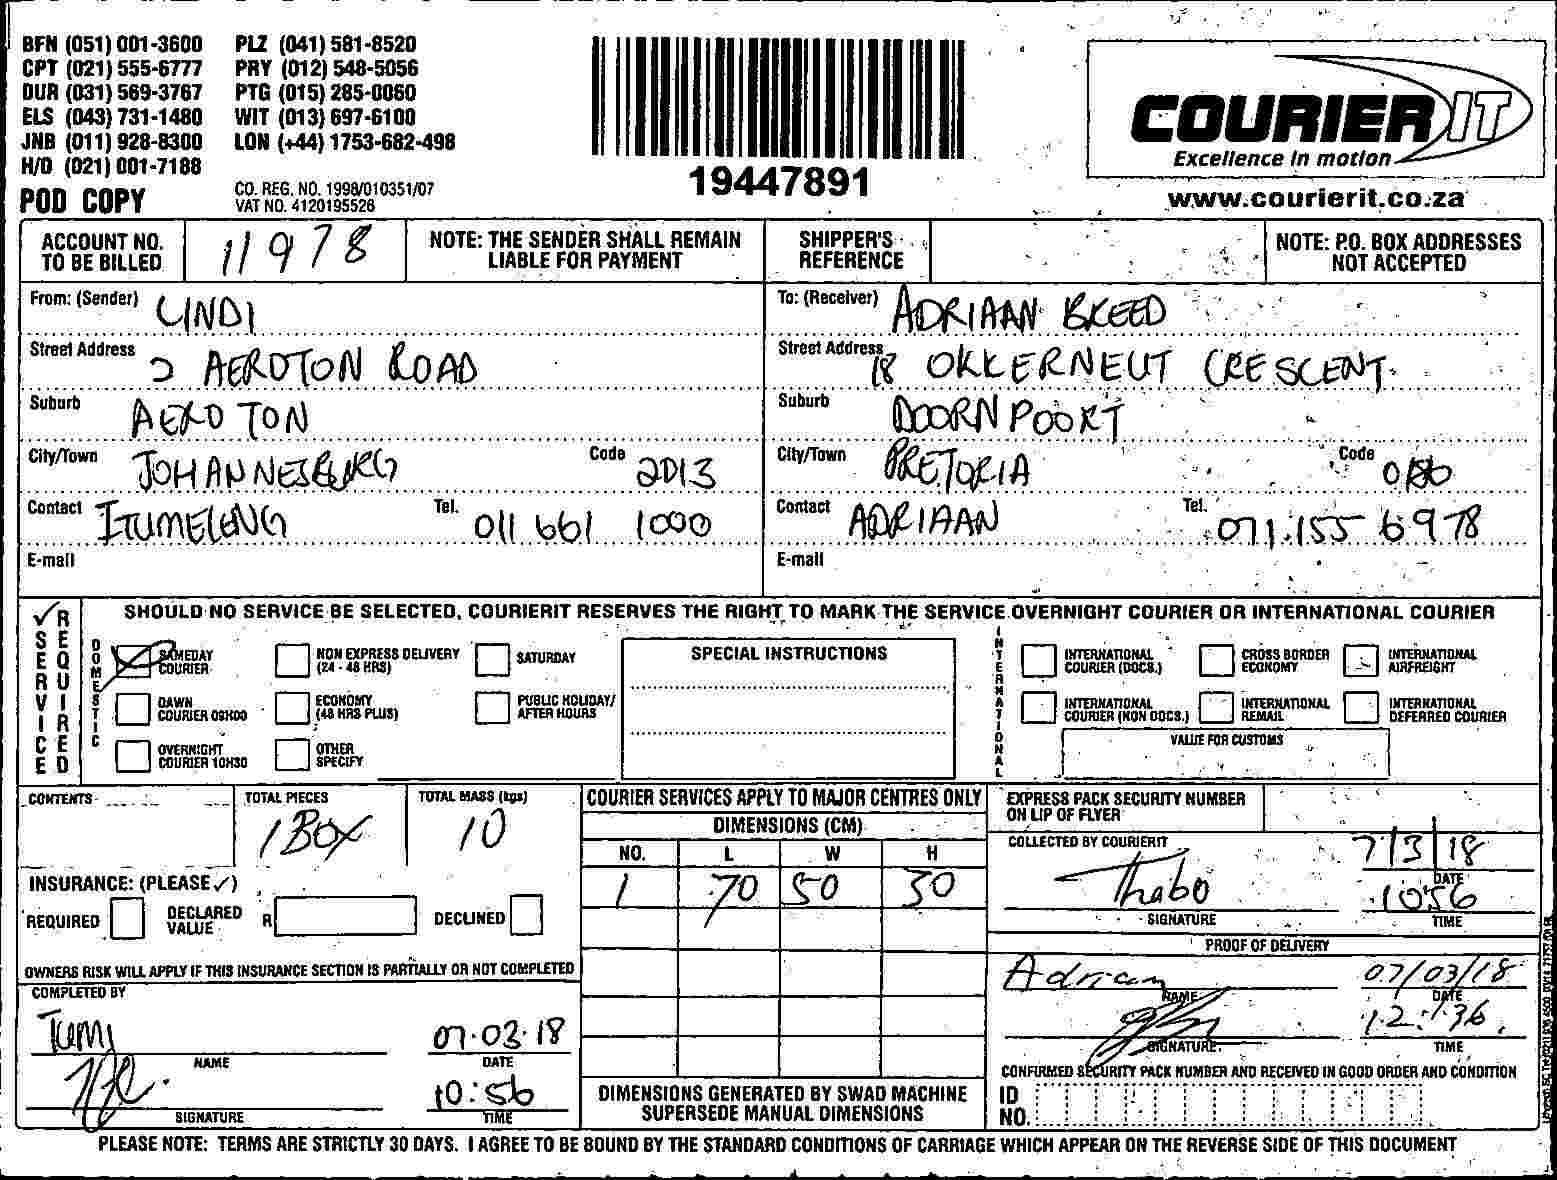 BFN (051) 001-3600 PLZ (041) 581-8520
CPT (021) 555-6777 PRY (012) 548-5056
DUR (031) 569-3767 PTG (015) 285-0060
ELS (043) 731-1480 WIT (013) 697-6100
JNB (011) 928-8300 LON (+44) 1753-682-498
H/O (021) 001-7188
POD COPY
CO. REG. NO. 1998/010351/07
VAT NO. 4120195526
19447891
COURIER IT
Excellence in motion
www.courierit.co.za
ACCOUNT NO. TO BE BILLED 11978
NOTE: THE SENDER SHALL REMAIN LIABLE FOR PAYMENT
SHIPPER'S REFERENCE
NOTE: P.O. BOX ADDRESSES NOT ACCEPTED
From: (Sender) LINDI
Street Address 2 AEROTON ROAD
Suburb AEROTON
City/Town JOHANNESBURG Code 2013
Contact ITUMELENG Tel. 011 661 1000
E-mail
To: (Receiver) ADRIAAN BREED
Street Address 18 OKKERNEUT CRESCENT
Suburb DOORNPOORT
City/Town PRETORIA Code
Contact ADRIAAN Tel. 071 155 6978
E-mail
✓ SERVICE REQUIRED
SHOULD NO SERVICE BE SELECTED, COURIERIT RESERVES THE RIGHT TO MARK THE SERVICE OVERNIGHT COURIER OR INTERNATIONAL COURIER
DOMESTIC
SAMEDAY COURIER
NON EXPRESS DELIVERY (24 - 48 HRS)
SATURDAY
DAWN COURIER 09H00
ECONOMY (48 HRS PLUS)
PUBLIC HOLIDAY/ AFTER HOURS
OVERNIGHT COURIER 10H30
OTHER SPECIFY
SPECIAL INSTRUCTIONS
INTERNATIONAL
INTERNATIONAL COURIER (DOCS.)
CROSS BORDER ECONOMY
INTERNATIONAL AIRFREIGHT
INTERNATIONAL COURIER (NON DOCS.)
INTERNATIONAL REMAIL
INTERNATIONAL DEFERRED COURIER
VALUE FOR CUSTOMS
CONTENTS
TOTAL PIECES 1 BOX
TOTAL MASS (kgs) 10
INSURANCE: (PLEASE ✓)
REQUIRED
DECLARED VALUE R
DECLINED
OWNERS RISK WILL APPLY IF THIS INSURANCE SECTION IS PARTIALLY OR NOT COMPLETED
COMPLETED BY
Tumi 07.03.18
NAME DATE
10:56
SIGNATURE TIME
COURIER SERVICES APPLY TO MAJOR CENTRES ONLY
DIMENSIONS (CM)
NO. L W H
1 70 50 50
DIMENSIONS GENERATED BY SWAD MACHINE SUPERSEDE MANUAL DIMENSIONS
EXPRESS PACK SECURITY NUMBER ON LIP OF FLYER
COLLECTED BY COURIERIT 7/3/18
DATE
Thabo 1056
SIGNATURE TIME
PROOF OF DELIVERY
Adriaan 07/03/18
NAME DATE
12:36
SIGNATURE TIME
CONFIRMED SECURITY PACK NUMBER AND RECEIVED IN GOOD ORDER AND CONDITION
ID NO.
PLEASE NOTE: TERMS ARE STRICTLY 30 DAYS. I AGREE TO BE BOUND BY THE STANDARD CONDITIONS OF CARRIAGE WHICH APPEAR ON THE REVERSE SIDE OF THIS DOCUMENT